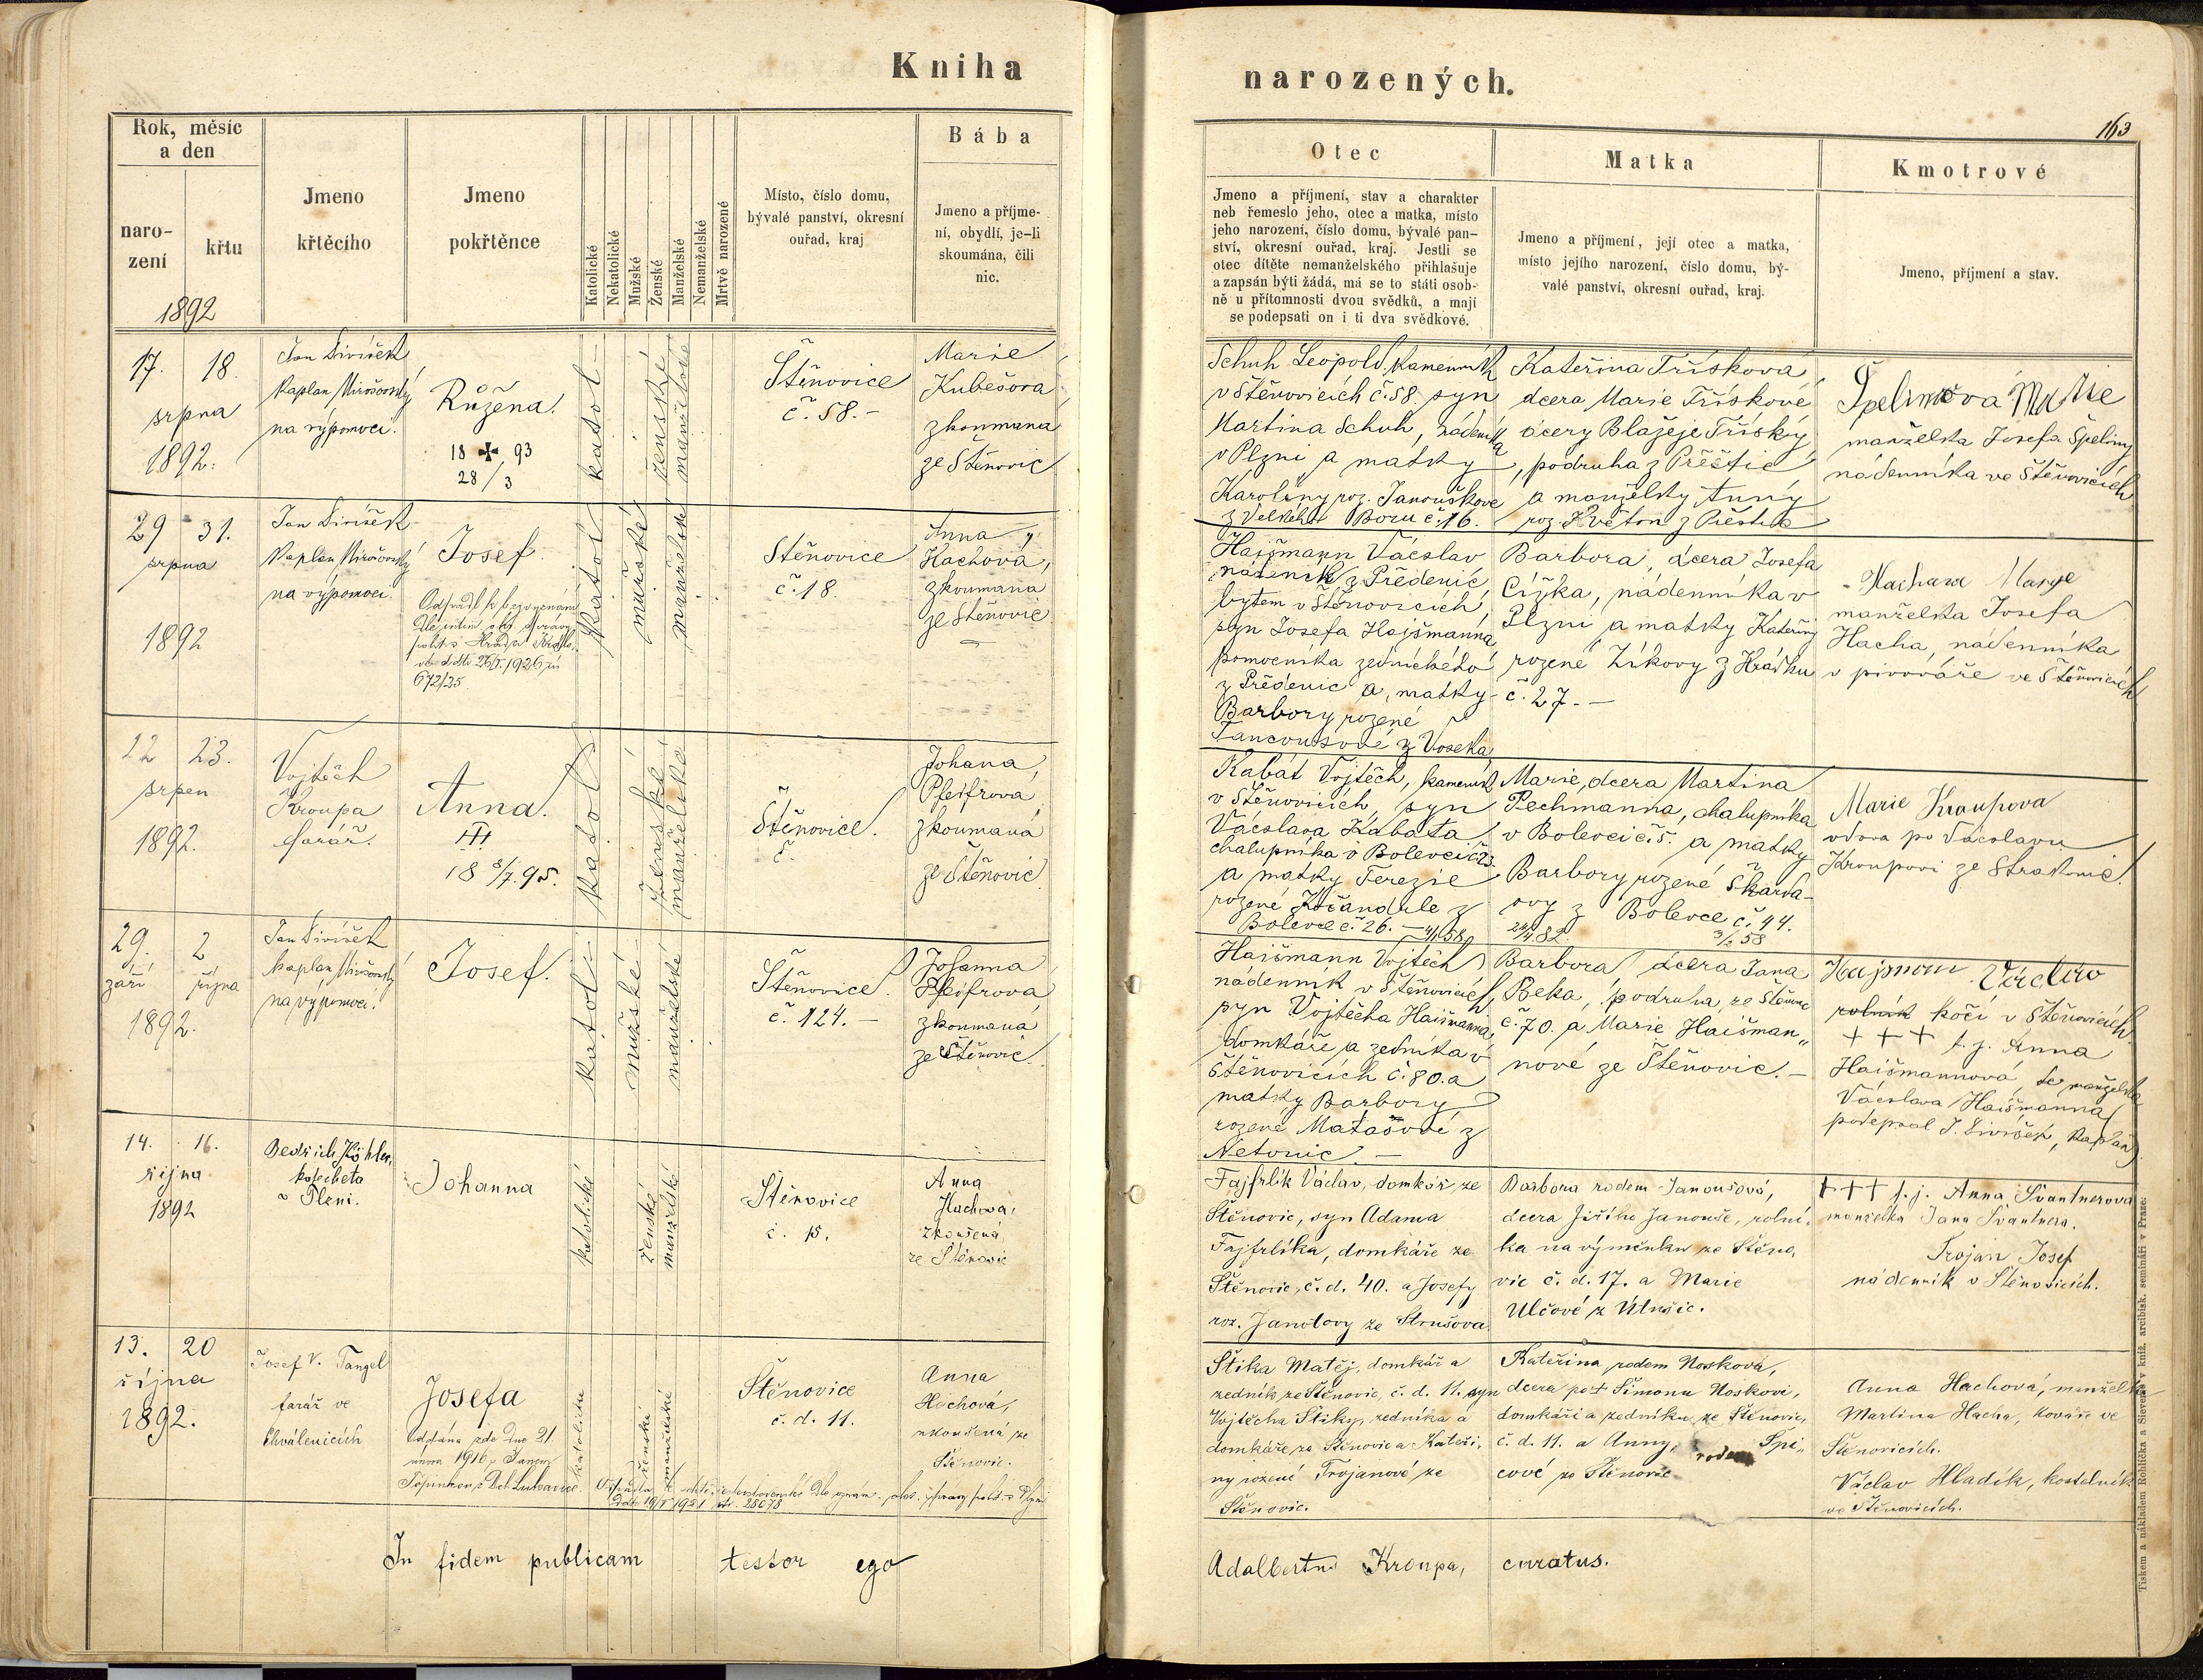 Kniha
narozených.
163
Rok, měsíc
a den
naro-
zení
křtu
1892
Jmeno
křtěcího
Jmeno
pokřtěnce
Katolické
Nekatolické
Mužské
Ženské
Manželské
Nemanželské
Mrtvě narozené
Místo, číslo domu,
bývalé panství, okresní
ouřad, kraj
Bába
Jmeno a příjme-
ní, obydlí, je-li
skoumána, čili
nic.
Otec
Jmeno a příjmení, stav a charakter
neb řemeslo jeho, otec a matka, místo
jeho narození, číslo domu, bývalé pan-
ství, okresní ouřad, kraj. Jestli se
otec dítěte nemanželského přihlašuje
a zapsán býti žádá, má se to státi osob-
ně u přítomnosti dvou svědků, a mají
se podepsati on i ti dva svědkové.
Matka
Jmeno a příjmení, její otec a matka,
místo jejího narození, číslo domu, bý-
valé panství, okresní ouřad, kraj.
Kmotrové
Jmeno, příjmení a stav.
17. 18.
srpna
1892.
Jan Diviček
Kaplan Mirošovský
na výpomoci.
Růžena.
18 ✠ 93
28/3
katol
ženské
manželské
Štěnovice
č. 58.-
Marie
Kubešova
zkoumaná
ze Štěnovic
Schuh Leopold, kameník
v Štěnovicích č. 58. syn
Martina Schuh, nádeníka
v Plzni a matky
Karolíny roz. Janouškove
z Velkého Boru č. 16.
Kateřina Třísková
dcera Marie Třískové
dcery Blažeje Třísky
, podruha z Přeštic
a manželky Anny
roz. Květon z Přeštic
Špelinová Marie
manželka Josefa Špeliny
nádenníka ve Štěnovicích
29 31.
srpna
1892
Jan Diviček
Kaplan Mirošovský
na výpomoci.
Josef.
672/25
katol
mužské
manželské
Štěnovice
č. 18.
Anna
Hachová,
zkoumaná
ze Štěnovic
Haišmann Václav
nádeník z Předenic,
bytem v Štěnovicích,
syn Josefa Haišmanna
pomocníka zednického
z Předenic a matky
Barbory rozené
Tancoušové z Voseka
Barbora, dcera Josefa
Čížka, nádenníka v
Plzni a matky Kateřiny
rozené Zíkovy z Hrádku
č. 27.-
Hachova Marye
manželka Josefa
Hacha, nádenníka
v pivováře ve Štěnovicích
22 23.
srpen
1892.
Vojtěch
Kroupa
farář.
Anna.
18 3/7. 95.
katol
ženské
manželské
Štěnovice.
č.
Johana
Pfeifrova
zkoumaná
ze Štěnovic
Kabát Vojtěch, kameník
v Štěnovicích, syn
Václava Kabáta
chalupníka v Bolevci č. 23.
a matky Terezie
rozené Kočandrle z
Bolevce č. 26.
Marie, dcera Martina
Pechmanna, chalupníka
v Bolevci č. 5. a matky
Barbory rozené Škarda-
ovy z Bolevce č. 44.
Marie Kroupova
vdova po Václavu
Kroupovi ze Strakonic.
29. 2
září října
1892.
Jan Diviček
kaplan Mirošovský
na výpomoci.
Josef.
katoli
mužské
manželské
Štěnovice.
č. 124.-
Johanna
Pfeifrová
zkoumaná
ze Štěnovic.
Haišmann Vojtěch
nádenník v Štěnovicích,
syn Vojtěcha Haišmanna,
domkáře a zedníka v
Štěnovicích č. 80. a
matky Barbory
rozené Matašové z
Netonic.-
Barbora dcera Jana
Beka, podruha, ze Štěnovic
č. 70. a Marie Haišman„
nové ze Štěnovic.-
Hajsmon Václav
rolník kočí v Štěnovicích
+ + + t. j. Anna
Haišmannová, manželka
Václava Haišmanna
podepsal J. Diviček, Kaplan
14. 16.
října
1892
Bedřich Köhler,
katecheta
v Plzni.
Johanna
katolické
ženské
manželské
Štěnovice
č. 15.
Anna
Hachová,
zkoušená
ze Štěnovic
Fajfrlík Václav, domkář ze
Štěnovic, syn Adama
Fajfrlíka, domkáře ze
Štěnovic, č. d. 40. a Josefy
roz. Janotovy ze Strušova.
Barbora rodem Janoušová,
dcera Jiřího Janouše, rolní-
ka na výměnku ze Štěno,
vic č. d. 17. a Marie
Ulčové z Útušic.
+++ t. j. Anna Švantnerova
manželka Jana Švantnera.
Trojan Josef
nádenník v Štěnovicích.
13. 20
října
1892.
Josef V. Tangel
farář ve
Chválenicích
Josefa
oddána zde dne 21.
února 1916 s Janem
katolické
ženské
manželské
Štěnovice
č. d. 11.
Anna
Hachová,
zkoušená ze
Štěnovic.
Štika Matěj, domkář a
zedník ze Štěnovic, č. d. 11. syn
Vojtěcha Štiky, zedníka a
domkáře ze Štěnovic a Kateři,
ny rozené Trojanové ze
Štěnovic.
Kateřina rodem Nosková,
dcera po + Šimonu Noskovi,
domkáři a zedníku ze Štěnovic,
č. d. 11. a Anny, rodem Špi„
cové ze Štěnovic
Anna Hachová, manželka
Martina Hacha, kováře ve
Štěnovicích.
Václav Hladík, kostelník
ve Štěnovicích.
In fidem publicam testor ego
Adalbertus Kroupa, curatus.
Tiskem a nákladem Rohlíčka a Sieverse v kníž. arcibisk. semináři v Praze.